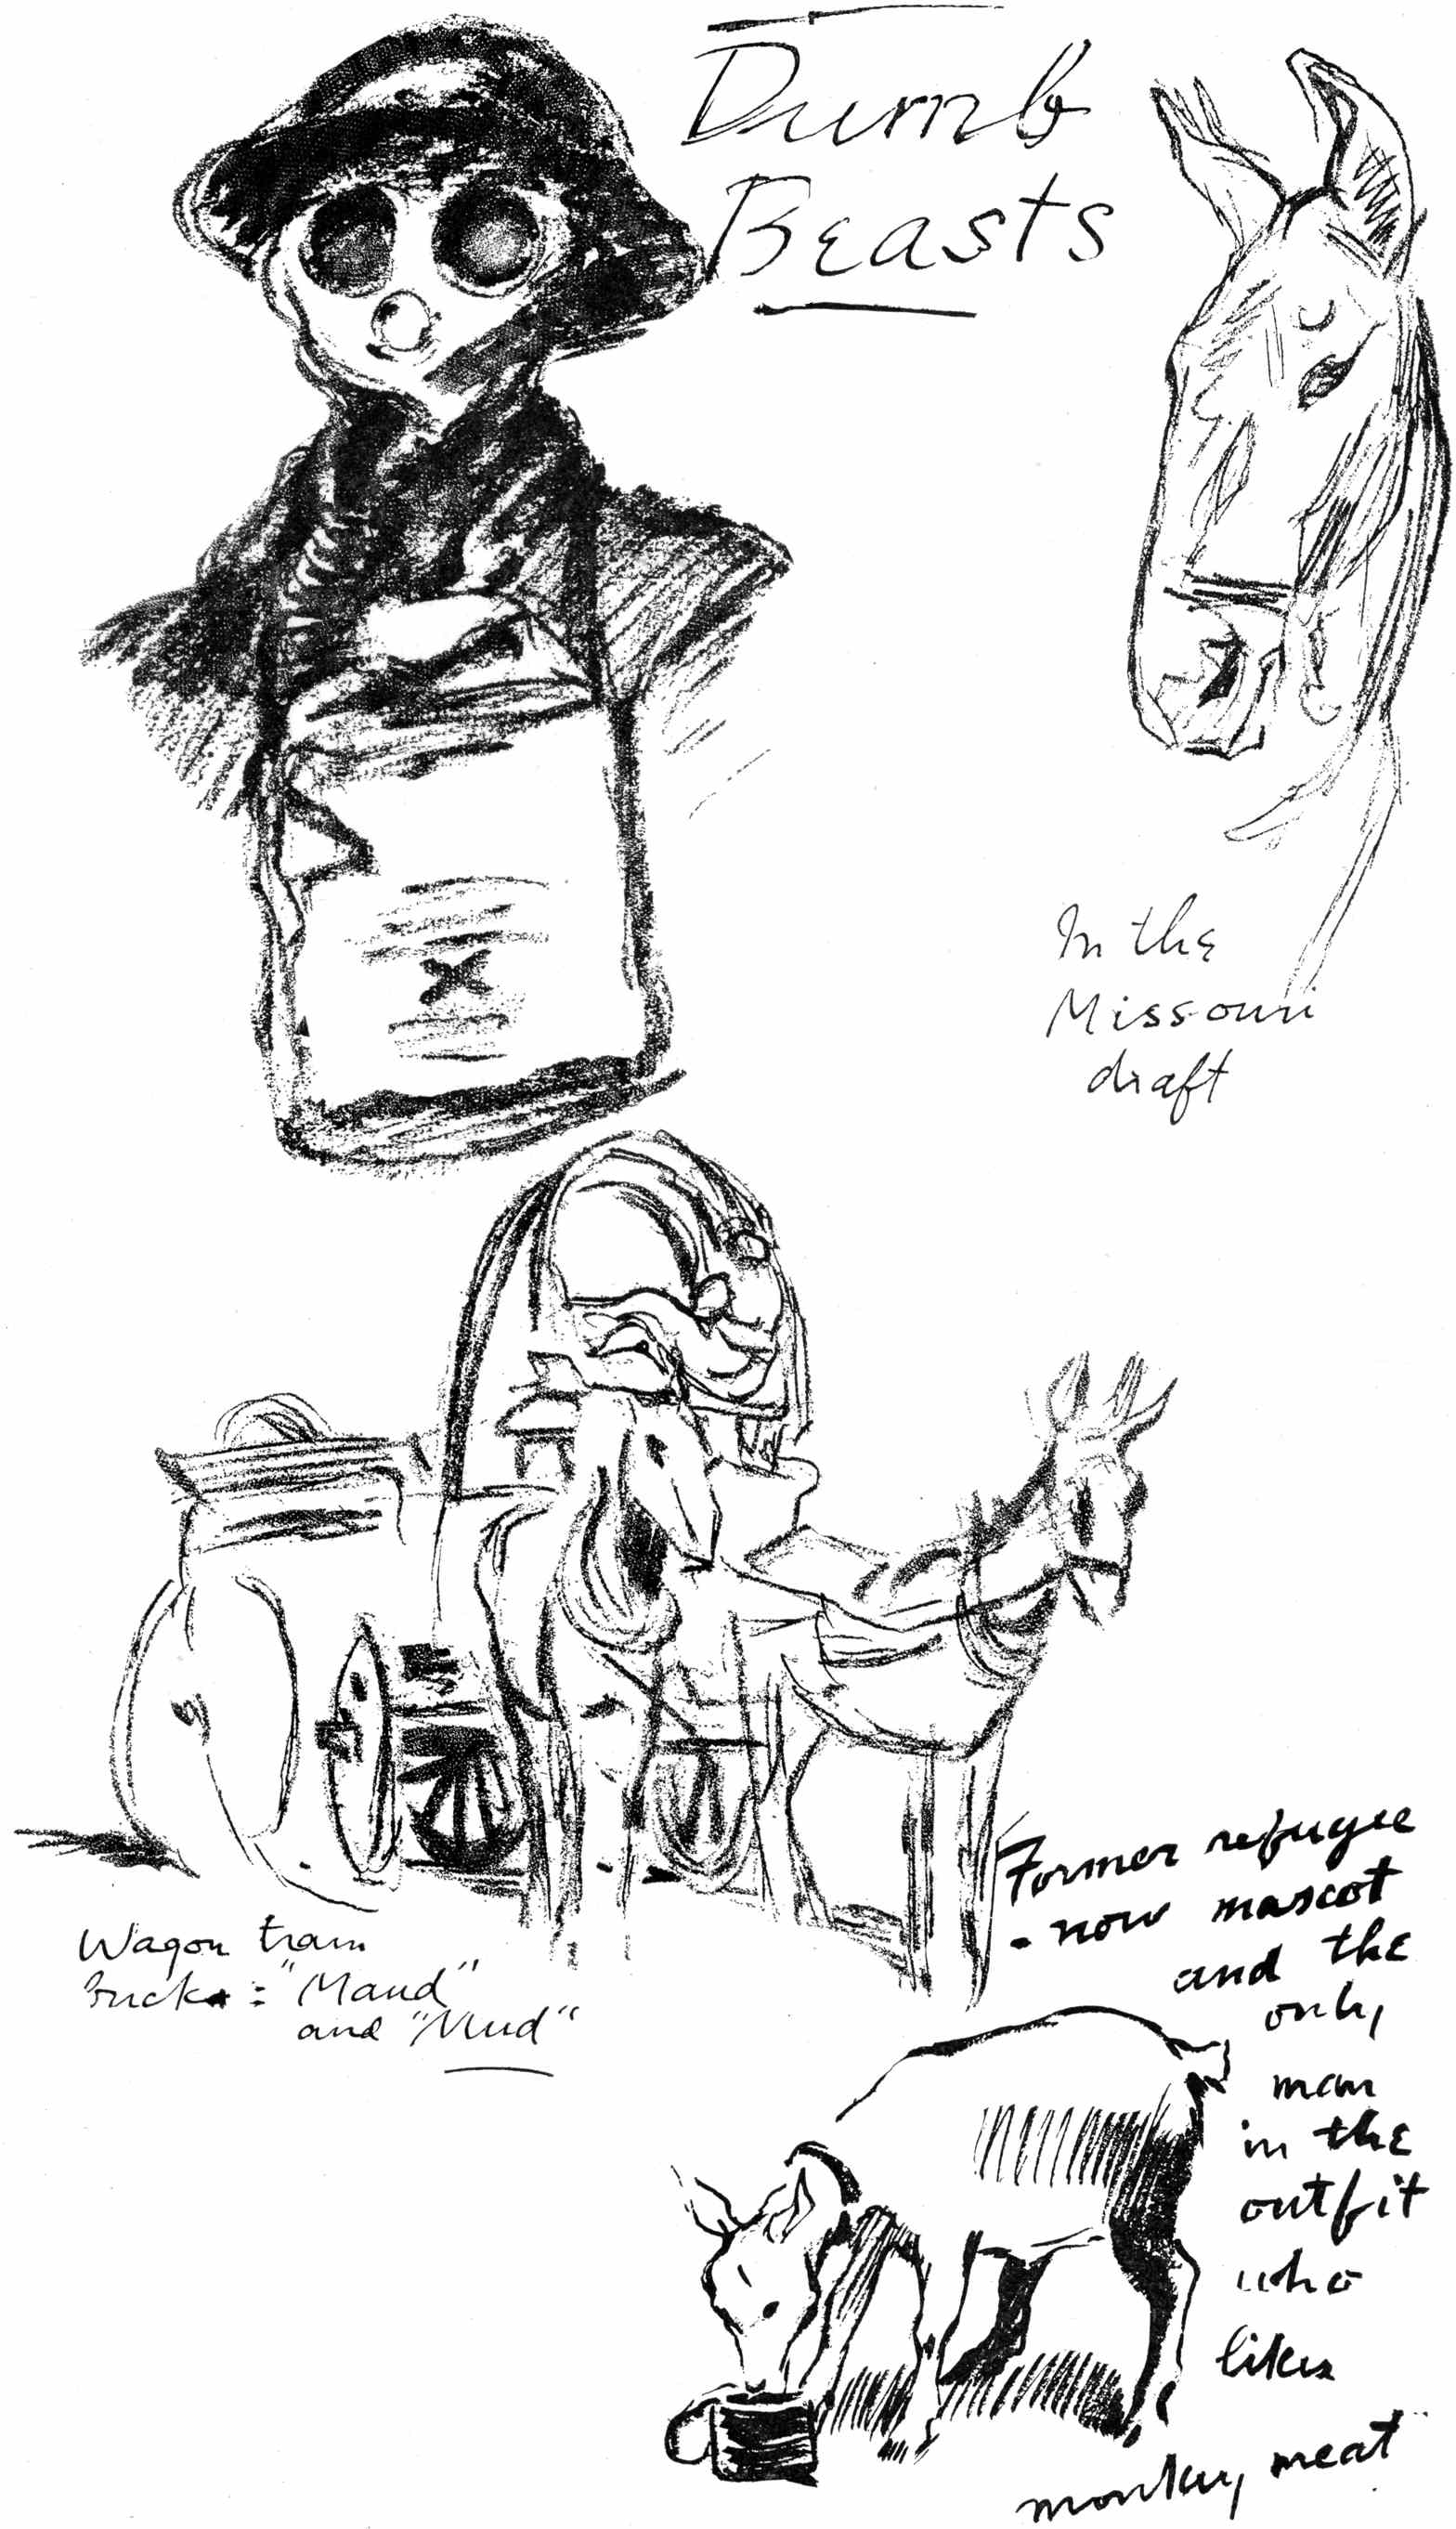 Dumb
Beasts
In the
Missouri
draft
Wagon train
Bucks: "Maud"
and "Mud"
Former refugee
- now mascot
and the
only
man
in the
outfit
who
likes
monkey meat